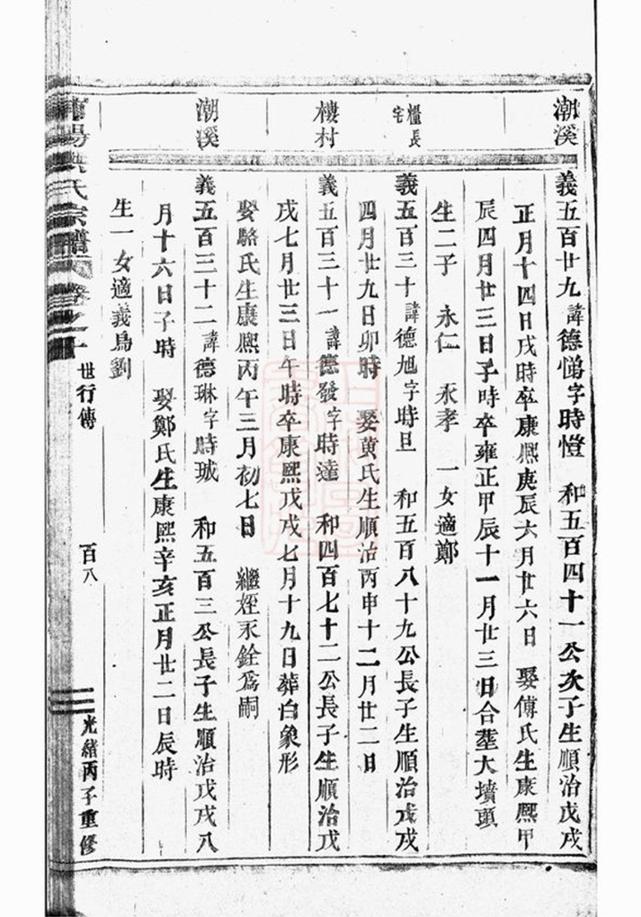 潮溪
義五百廿九諱德悌字時愷　和五百四十一公次子生順治戊戌
正月十四日戌時卒康熙庚辰六月廿六日　娶傅氏生康熙甲
辰四月廿三日子時卒雍正甲辰十一月廿三日合塟大墳頭
生二子　永仁　永孝　一女適鄭
糧長宅
義五百三十諱德旭字時旦　和五百八十九公長子生順治戊戌
四月廿九日卯時　娶黄氏生順治丙申十二月廿二日
樓村
義五百三十一諱德發字時達　和四百七十二公長子生順治戊
戌七月廿三日午時卒康熙戊戌七月十九日葬白象形
娶駱氏生康熙丙午三月初七日　繼姪永銓爲嗣
潮溪
義五百三十二諱德琳字時珹　和五百三公長子生順治戊戌八
月十六日子時　娶鄭氏生康熙辛亥正月廿二日辰時
生一女適義烏劉
陽 氏宗譜 卷之
世行傳
百八
光緒丙子重修